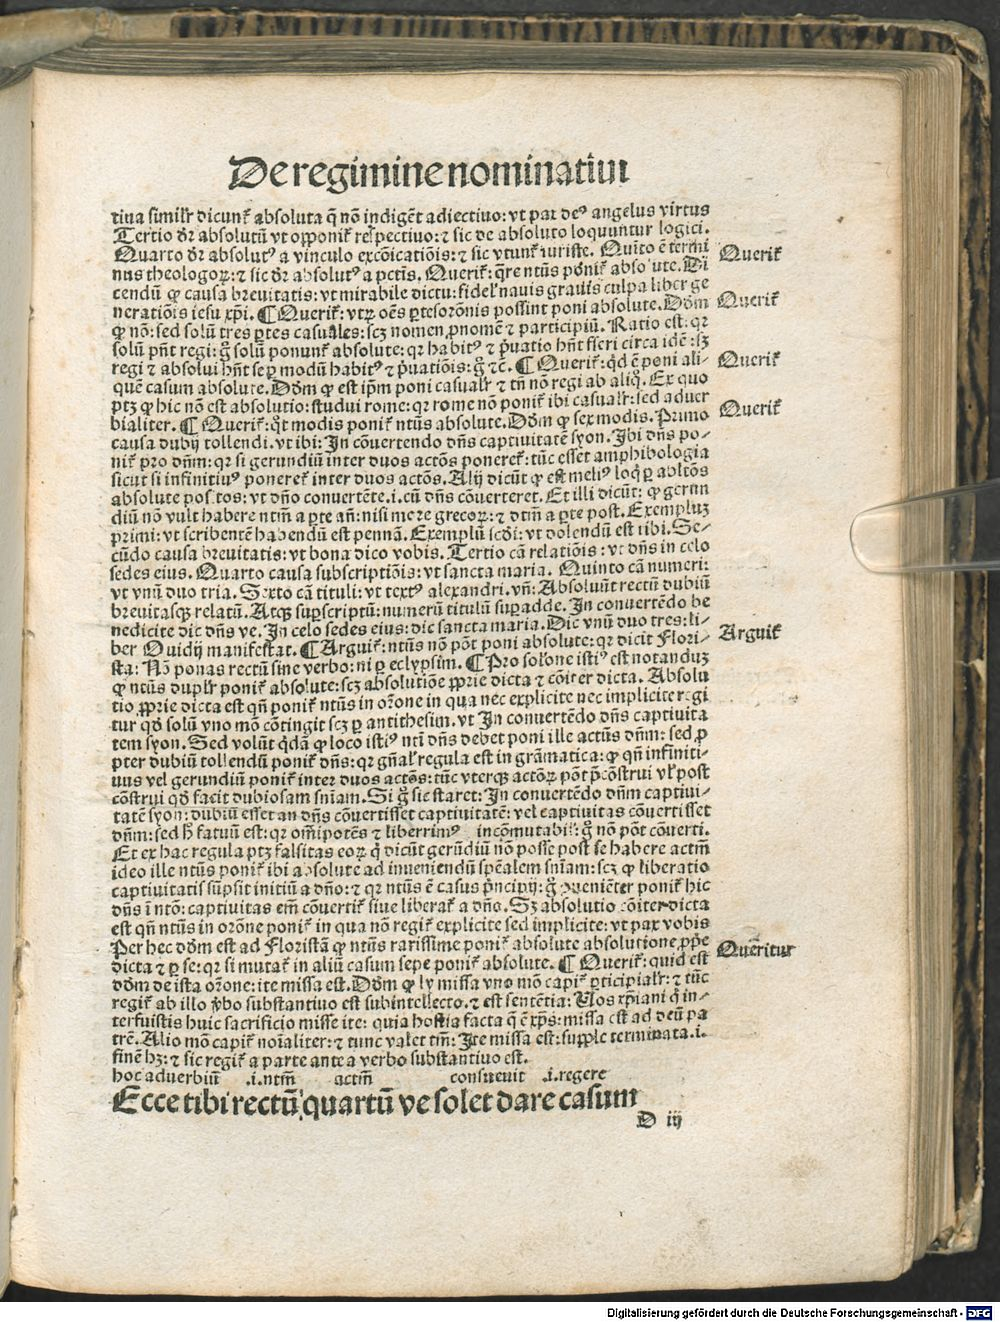 De regimine nominatiui
tiua similr̄ dicunt̃ absoluta q̃ nõ indigẽt adiectiuo: vt pat de⁹ angelus virtus
Tertio dr̃ absolutũ vt opponit̃ respectiuo: ⁊ sic de absoluto loquuntur logici.
Quarto dr̃ absolut⁹ a vinculo excõicatiõis: ⁊ sic vtunt̃ iuriste. Quĩto ẽ termi
nus theologoꝝ: ⁊ sic dr̃ absolut⁹ a pctĩs. Querit̃: q̃re ntũs põnit̃ absolute. Di
cendũ ꝙ causa breuitatis: vt mirabile dictu: fidel' nauis grauis culpa liber ge
neratiõis iesu xp̃i. ¶ Querit̃: vtꝝ oẽs ꝑtes orõnis possint poni absolute. Dõm
ꝙ nõ: sed solũ tres ꝑtes casuales: scꝫ nomen, ꝓnomẽ ⁊ participiũ. Ratio est: qꝛ
solũ pñt regi: g̊ solũ ponunt̃ absolute: qꝛ habit⁹ ⁊ p̃uatio hñt fieri circa idẽ: sꝫ
regi ⁊ absolui hñt se ꝑ modũ habit⁹ ⁊ p̃uatiõis: g̊ ⁊c̃. ¶ Querit̃: qd̃ ẽ poni ali-
quẽ casum absolute. Dõm ꝙ est ip̃m poni casualr̄ ⁊ tñ nõ regi ab aliq̊. Ex quo
ptꝫ ꝙ hic nõ est absolutio: studui rome: qꝛ rome nõ ponit̃ ibi casualr̄: sed aduer
bialiter. ¶ Querit̃: q̊t modis ponit̃ ntũs absolute. Dõm ꝙ sex modis. Primo
causa dubij tollendi. vt ibi: In cõuertendo dñs captiuitatẽ syon. Ibi dñs po-
nit̃ pro dñm: qꝛ si gerundiũ inter duos actõs poneret̃: tũc esset amphibologia
sicut si infinitiu⁹ poneret̃ inter duos actõs. Alij dicũt ꝙ est meli⁹ loq̇ ꝑ abltõs
absolute positos: vt dño conuertẽte. i. cũ dñs cõuerteret. Et illi dicũt: ꝙ gerun
diũ nõ vult habere ntm̃ a ꝑte añ: nisi more grecoꝝ: ⁊ dtm̃ a ꝑte post. Exempluꝫ
primi: vt scribentẽ habendũ est pennã. Exemplũ scḋi: vt dolendũ est tibi. Se-
cũdo causa breuitatis: vt bona dico vobis. Tertio cã relatiõis: vt dñs in celo
sedes eius. Quarto causa subscriptiõis: vt sancta maria. Quinto cã numeri:
vt vnũ duo tria. Sexto cã tituli: vt text⁹ alexandri. vñ: Absoluũt rectũ dubiũ
breuitasqꝫ relatũ. Atqꝫ suꝑscriptũ: numerũ titulũ suꝑadde. In conuertẽdo be
nedicite dic dñs ve. In celo sedes eius: dic sancta maria. Dic vnũ duo tres: li-
ber Ouidij manifestat. ¶ Arguit̃: ntũs nõ põt poni absolute: qꝛ dicit Flori-
sta: Nõ ponas rectũ sine verbo: ni ꝑ eclypsim. ¶ Pro solone isti⁹ est notanduꝫ
ꝙ ntũs duplr̄ ponit̃ absolute: scꝫ absolutiõe ꝓprie dicta ⁊ cõiter dicta. Absolu
tio ꝓprie dicta est qñ ponit̃ ntũs in orõne in qua nec explicite nec implicite regi
tur qd̃ solũ vno mõ cõtingit scꝫ ꝑ antithesim. vt In conuertẽdo dñs captiuita
tem syon. Sed volũt q̇dã ꝙ loco isti⁹ ntĩ dñs debet poni ille actũs dñm: sed ꝓ
pter dubiũ tollendũ ponit̃ dñs: qꝛ gñalr̄ regula est in grãmatica: ꝙ qñ infiniti-
uus vel gerundiũ ponit̃ inter duos actõs: tũc vterqꝫ actõꝝ põt p̃cõstrui vl̃ post
cõstrui qd̃ facit dubiosam sniam. Si g̊ sic staret: In conuertẽdo dñm captiui-
tatẽ syon: dubiũ esset an dñs cõuertisset captiuitatẽ: vel captiuitas cõuertisset
dñm: sed h̊ fatuũ est: qꝛ om̃ipotẽs ⁊ liberrim⁹ incõmutabil: g̊ nõ põt cõuerti.
Et ex hac regula ptꝫ falsitas eoꝝ q̇ dicũt gerũdiũ nõ posse post se habere actm̃
ideo ille ntũs ponit̃ ibi absolute ad inueniendũ sp̃ealem sniam: scꝫ ꝙ liberatio
captiuitatis sũpsit initiũ a dño: ⁊ qꝛ ntũs ẽ casus p̃ncipij: g̊ ꝯueniẽter ponit̃ hic
dñs ĩ ntõ: captiuitas em̃ cõuertit̃ siue liberat̃ a dño. Sꝫ absolutio cõiter dicta
est qñ ntũs in orõne ponit̃ in qua nõ regit̃ explicite sed implicite: vt pax vobis
Per hec dõm est ad Floristã ꝙ ntũs rarissime ponit̃ absolute absolutione ꝓp̃e
dicta ⁊ ꝑ se: qꝛ si mutat̃ in aliũ casum sepe ponit̃ absolute. ¶ Querit̃: quid est
dõm de ista orõne: ite missa est. Dõm ꝙ ly missa vno mõ capit̃ ꝑticipialr̄: ⁊ tũc
regit̃ ab illo v̊bo substantiuo est subintellecto. ⁊ est sentẽtia: Uos xp̃iani q̇ in-
terfuistis huic sacrificio misse ite: quia hostia facta q̃ ẽ xp̃s: missa est ad deũ pa
trẽ. Alio mõ capit̃ noĩaliter: ⁊ tunc valet tm̃: Ite missa est: supple terminata .i.
finẽ hꝫ: ⁊ sic regit̃ a parte ante a verbo substantiuo est.
hoc aduerbiũ .i. ntm̃ actm̃ consueuit .i. regere
Ecce tibi rectũ, quartũ ve solet dare casum
D iij
Querit̃
Querit̃
Querit̃
Querit̃
Arguit̃
Queritur
Digitalisierung gefördert durch die Deutsche Forschungsgemeinschaft - DFG